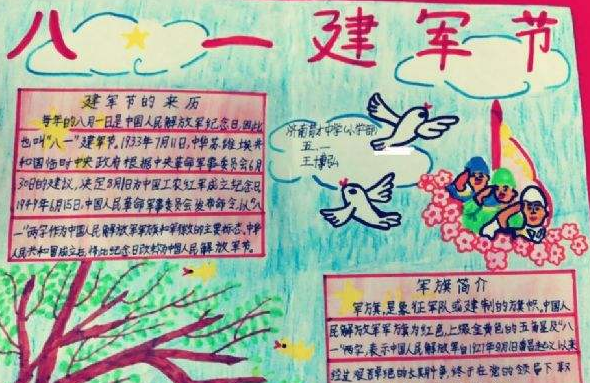 八一建军节
建军节的来历
每年的八月一日是中国人民解放军纪念日,因此
也叫"八一"建军节。1933年7月11日,中华苏维埃共
和国临时中央政府根据中央革命军事委员会6月
30日的建议,决定8月1日为中国工农红军成立纪念日。
1949年6月15日,中国人民革命军事委员会发布命令,以"八
一"两字作为中国人民解放军军旗和军徽的主要标志。中华
人民共和国成立后,将此纪念日改称为中国人民解放军节。
济南育才中学(小学部)
五.一
王博弘
军旗简介
军旗,是象征军队或建制的旗帜。中国人
民解放军军旗为红色,上缀金黄色的五角星及"八
一"两字,表示中国人民解放军自1927年8月1日南昌起义以来
经过艰苦卓绝的长期斗争,终于在党的领导下取